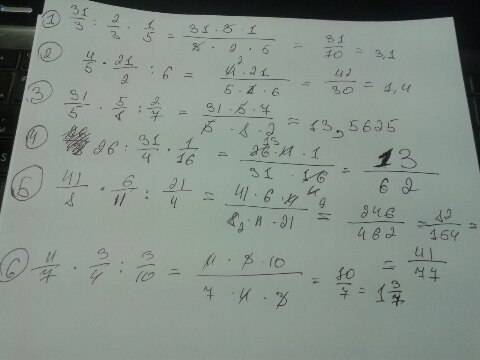 ① 31/5 : 2/3 · 1/5 = 31 · 3 · 1 / 5 · 2 · 6 = 31/10 = 3,1
② 4/5 · 21/2 : 6 = 4 2 · 21 / 5 · 2 · 6 = 42/30 = 1,4
③ 31/5 · 5/8 : 2/7 = 31 · 5 · 7 / 5 · 8 · 2 = 13,5625
④ 26 : 31/4 · 1/16 = 26 13 · 4 · 1 / 31 · 16 4 = 13/62
⑤ 41/8 · 6/11 : 21/4 = 41 · 6 · 4 / 8 2 · 11 · 21 = 246/462 = 82/154 =
= 41/77
⑥ 11/7 · 3/4 : 3/10 = 11 · 3 · 10 / 7 · 4 · 3 = 10/7 = 1 3/7